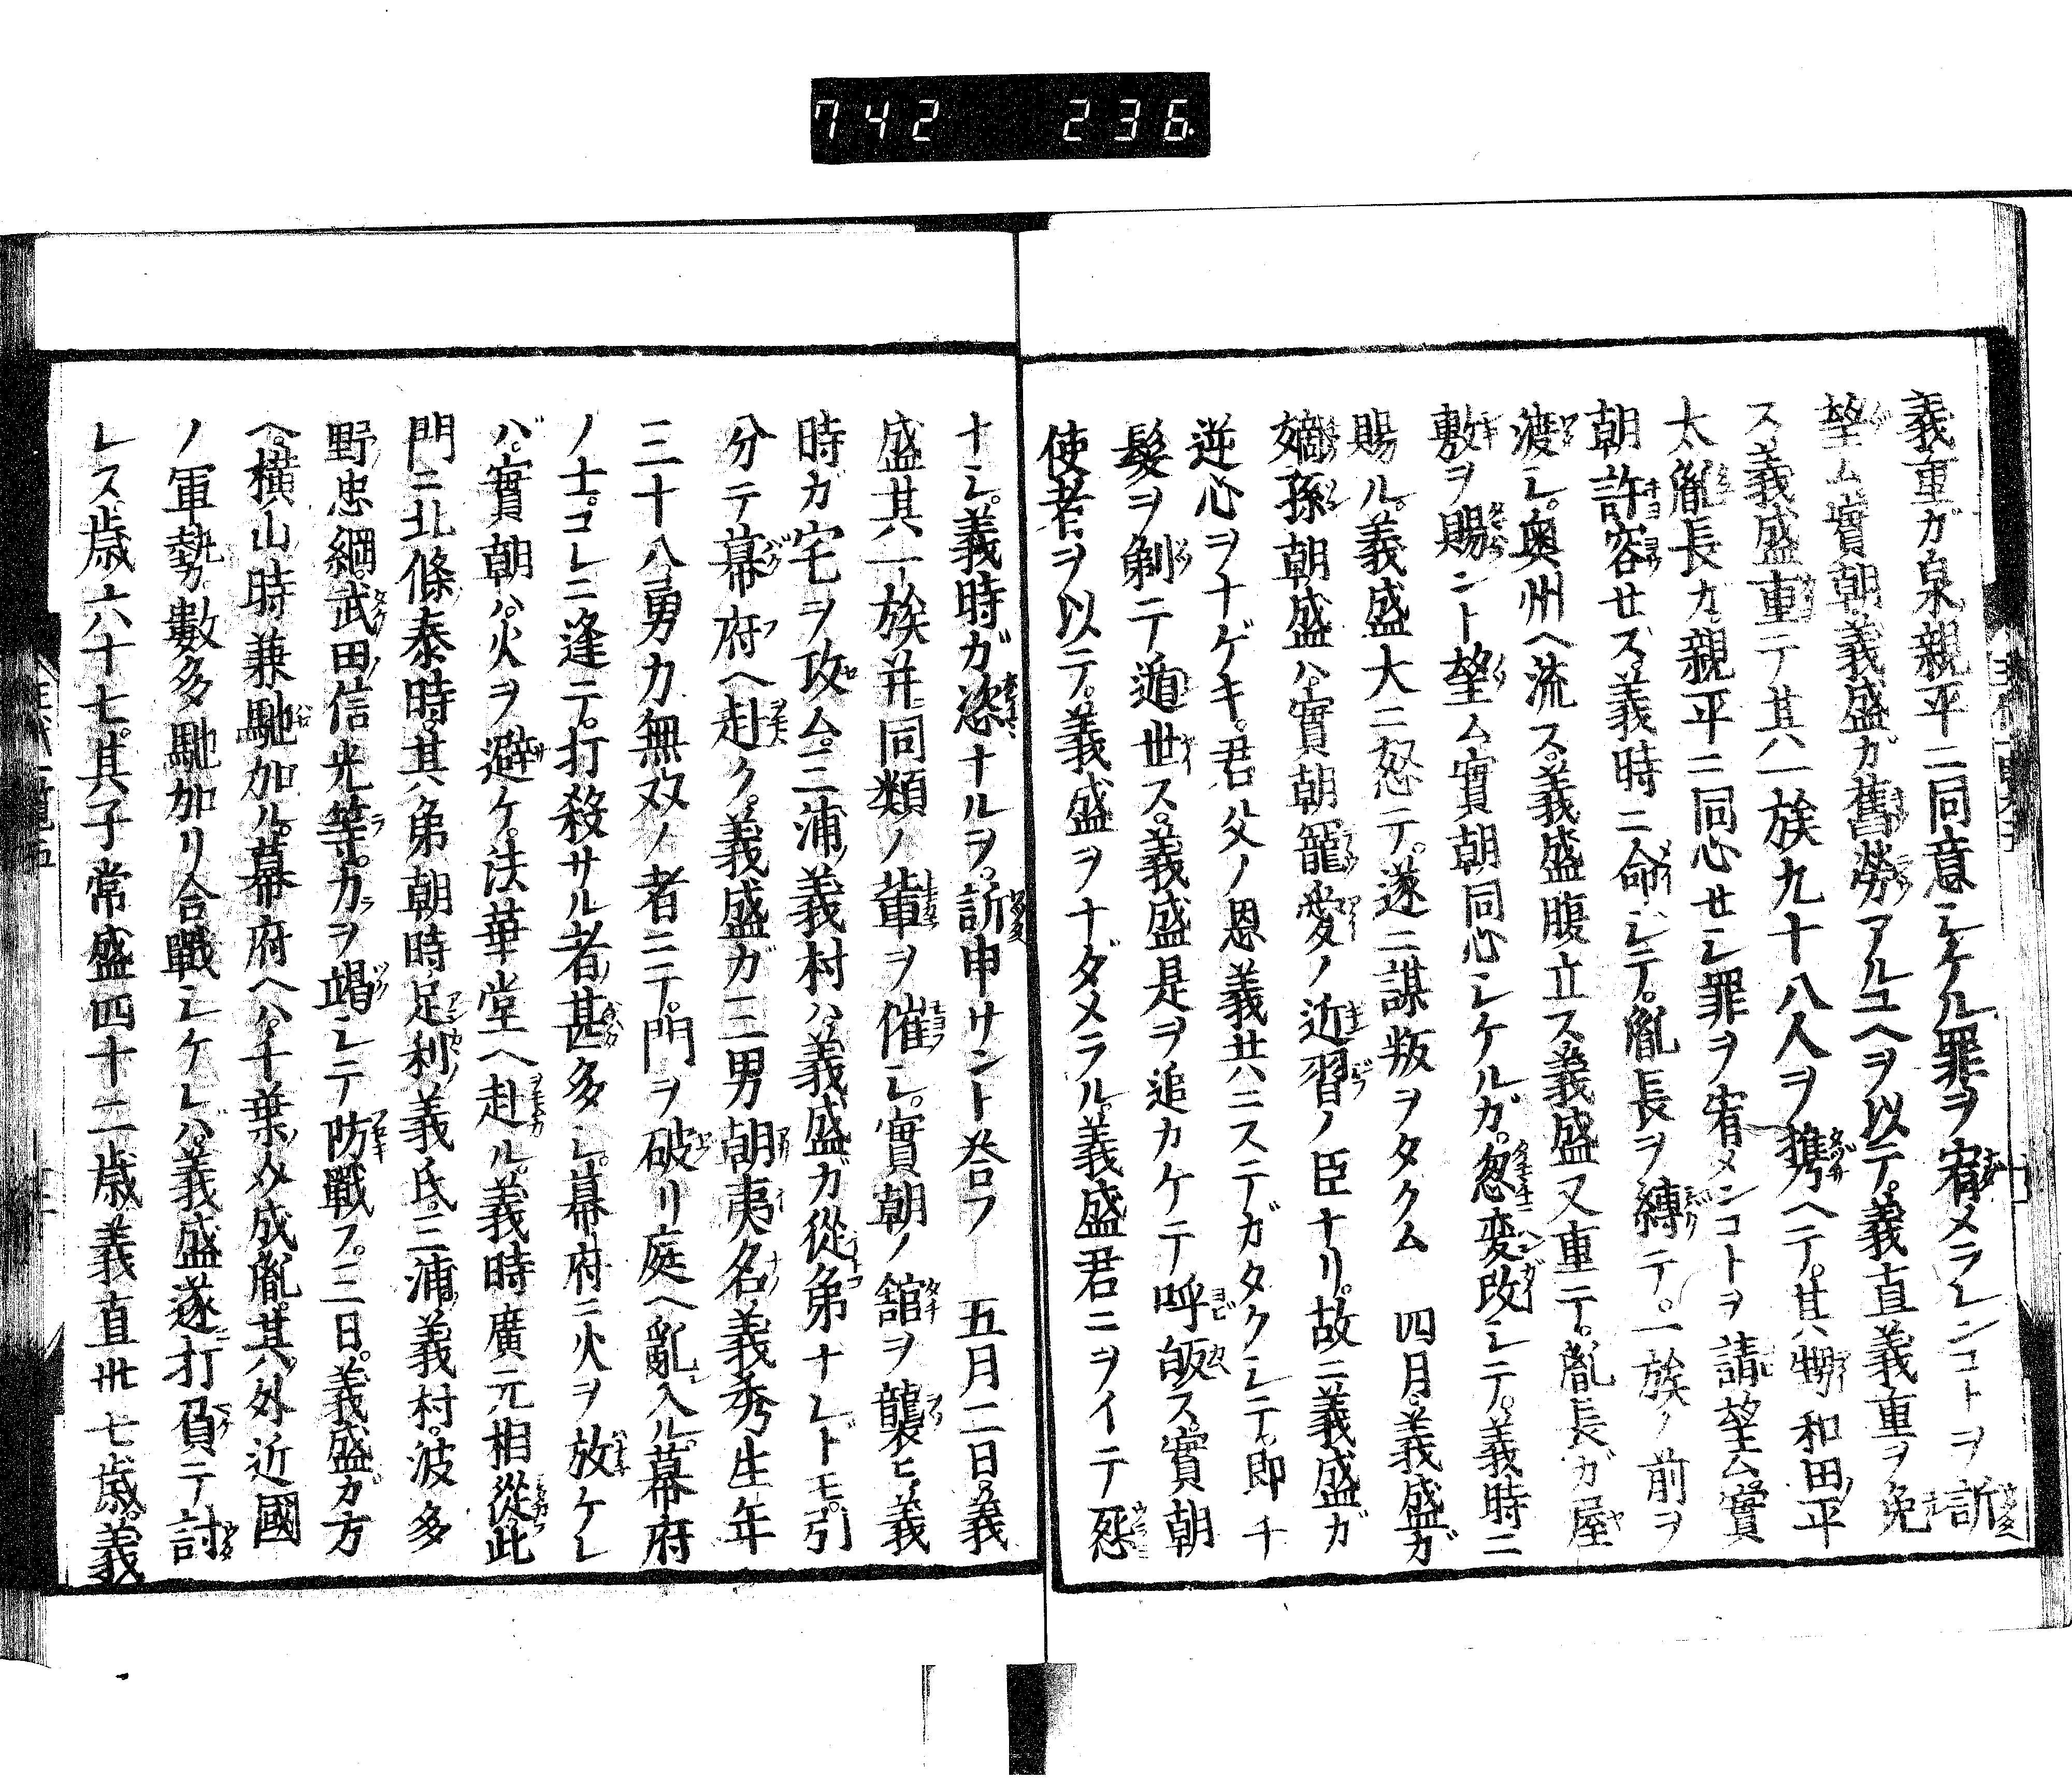 742 236
義重ガ泉親平ニ同意シケル罪ヲ宥メラレンコトヲ訴
望ム實朝義盛ガ舊勞アルユヘヲ以テ。義直義重ヲ免
ス義盛重テ其一族九十八人ヲ携ヘテ。其甥和田平
太胤長カ親平ニ同心セシ罪ヲ宥メンコトヲ請望ム實
朝許容セズ。義時ニ命シテ。胤長ヲ縛テ。一族ノ前ヲ
渡シ。奥州ヘ流ス。義盛腹立ス義盛又重テ。胤長ガ屋
敷ヲ賜ント望ム實朝同心シケルガ。忽変改シテ。義時ニ
賜ル。義盛大ニ怒テ。遂ニ謀叛ヲタクム 四月。義盛ガ
嫡孫朝盛ハ。實朝寵愛ノ近習ノ臣ナリ。故ニ義盛ガ
逆心ヲナゲキ。君父ノ恩義共ニステガタクシテ。即チ
髮ヲ剃テ遁世ス。義盛是ヲ追カケテ呼皈ス。實朝
使者ヲ以テ。義盛ヲナダメラル。義盛君ニヲイテ怨
ナシ。義時ガ恣ナルヲ。訴申サント答フ 五月二日。義
盛其一族并同類ノ輩ヲ催シ。實朝ノ舘ヲ襲ヒ。義
時カ宅ヲ攻ム。三浦義村ハ義盛ガ從弟ナレドモ。引
分テ幕府ヘ赴ク。義盛ガ三男朝夷名義秀生年
三十八勇力無双ノ者ニテ。門ヲ破リ庭ヘ亂入ル。幕府
ノ士。コレニ逢テ。打殺サル者甚多シ。幕府ニ火ヲ放ケレ
バ。實朝ハ。火ヲ避ケ。法華堂ヘ赴ル。義時廣元相從。此
門ニ北條泰時。其弟朝時足利義氏。三浦義村。波多
野忠綱。武田信光等。力ヲ竭シテ防戰フ。三日。義盛ガ方
ヘ。横山時兼馳加ル。幕府ヘハ。千葉介成胤。其外近國
ノ軍勢數多馳加リ合戰シケレバ。義盛遂打負テ討
レス歳六十七。其子常盛四十二歳義直卅七歳。義